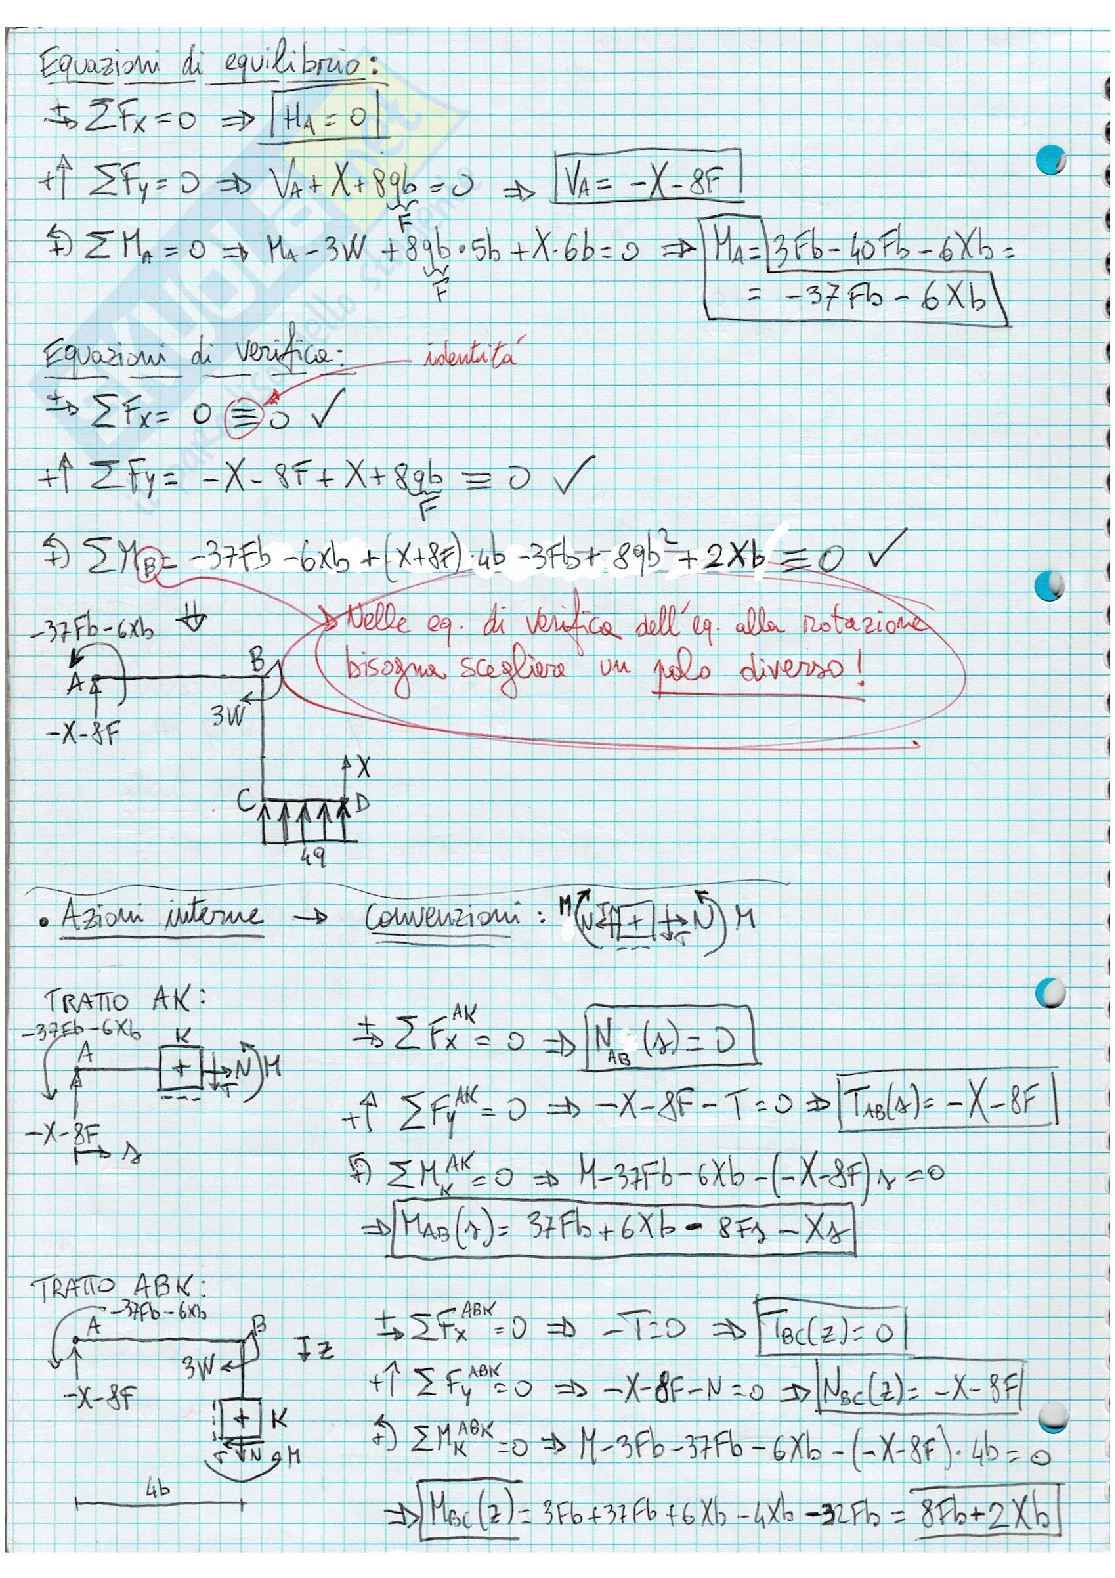 Equazioni di equilibrio:
+→ ΣFx = 0 ⇒ HA = 0
+↑ ΣFy = 0 ⇒ VA + X + 8qb = 0 ⇒ VA = -X - 8F
F
+) ΣMA = 0 ⇒ MA - 3W + 8qb·5b + X·6b = 0 ⇒ MA = 3Fb - 40Fb - 6Xb =
F
= -37Fb - 6Xb
Equazioni di verifica: identitá
+→ ΣFx = 0 ≡ 0 ✓
+↑ ΣFy = -X - 8F + X + 8qb ≡ 0 ✓
F
+) ΣMB = -37Fb - 6Xb + (X+8F)·4b - 3Fb + 8qb² + 2Xb ≡ 0 ✓
Nelle eq. di verifica dell'eq. alla rotazione
bisogna scegliere un polo diverso!
-37Fb-6Xb
A B
3W
-X-8F
X
C D
4q
• Azioni interne → Convenzioni: M N T + T N M
TRATTO AK:
-37Fb-6Xb K
A + N M
T
-X-8F
s
+→ ΣFx^AK = 0 ⇒ N_AB(s) = 0
+↑ ΣFy^AK = 0 ⇒ -X - 8F - T = 0 ⇒ T_AB(s) = -X - 8F
+) ΣM_K^AK = 0 ⇒ M - 37Fb - 6Xb - (-X-8F)s = 0
⇒ M_AB(s) = 37Fb + 6Xb - 8Fs - Xs
TRATTO ABK:
-37Fb-6Xb
A B
3W z
-X-8F
+ K
T N M
4b
+→ ΣFx^ABK = 0 ⇒ -T = 0 ⇒ T_BC(z) = 0
+↑ ΣFy^ABK = 0 ⇒ -X - 8F - N = 0 ⇒ N_BC(z) = -X - 8F
+) ΣM_K^ABK = 0 ⇒ M - 3Fb - 37Fb - 6Xb - (-X-8F)·4b = 0
⇒ M_BC(z) = 3Fb + 37Fb + 6Xb - 4Xb - 32Fb = 8Fb + 2Xb